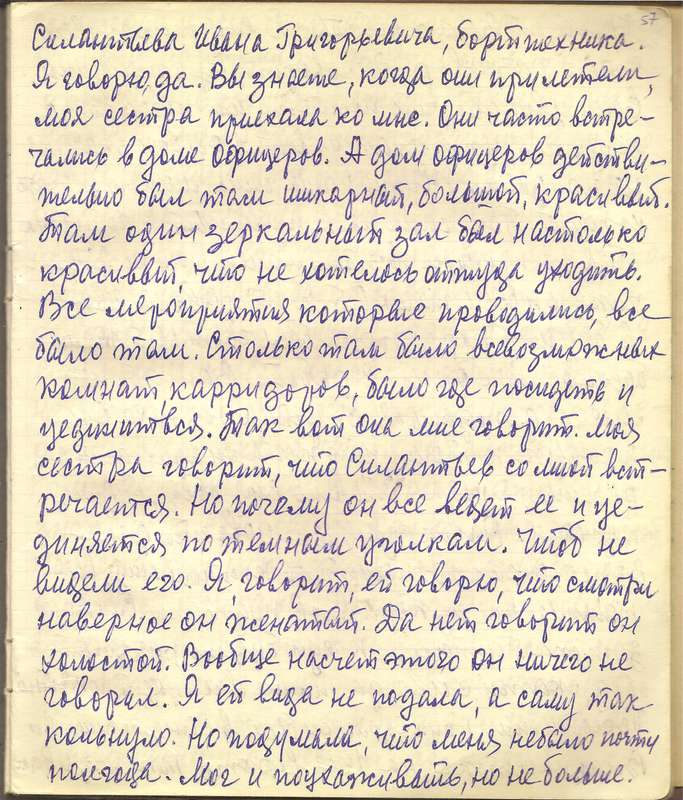 57
Силантьева Ивана Григорьевича, борттехника.
Я говорю да. Вы знаете, когда они прилетели,
моя сестра приехала ко мне. Они часто встре-
чались в доме офицеров. А дом офицеров действи-
тельно был там шикарный, большой, красивый.
Там один зеркальный зал был настолько
красивый, что не хотелось оттуда уходить.
Все мероприятия которые проводились, все
было там. Столько там было всевозможных
комнат, карридоров, было где посидеть и
уединиться. Так вот она мне говорит. Моя
сестра говорит, что Силантьев со мной вст-
речается. Но почему он все ведет ее и уе-
диняется по темным уголкам. Чтоб не
видели его. Я, говорит, ей говорю, что смотри
наверное он женатый. Да нет говорит он
холостой. Вообще насчет этого он ничего не
говорил. Я ей вида не подала, а саму так
кольнуло. Но подумала, что меня небыло почти
полгода. Мог и поухаживать, но не больше.